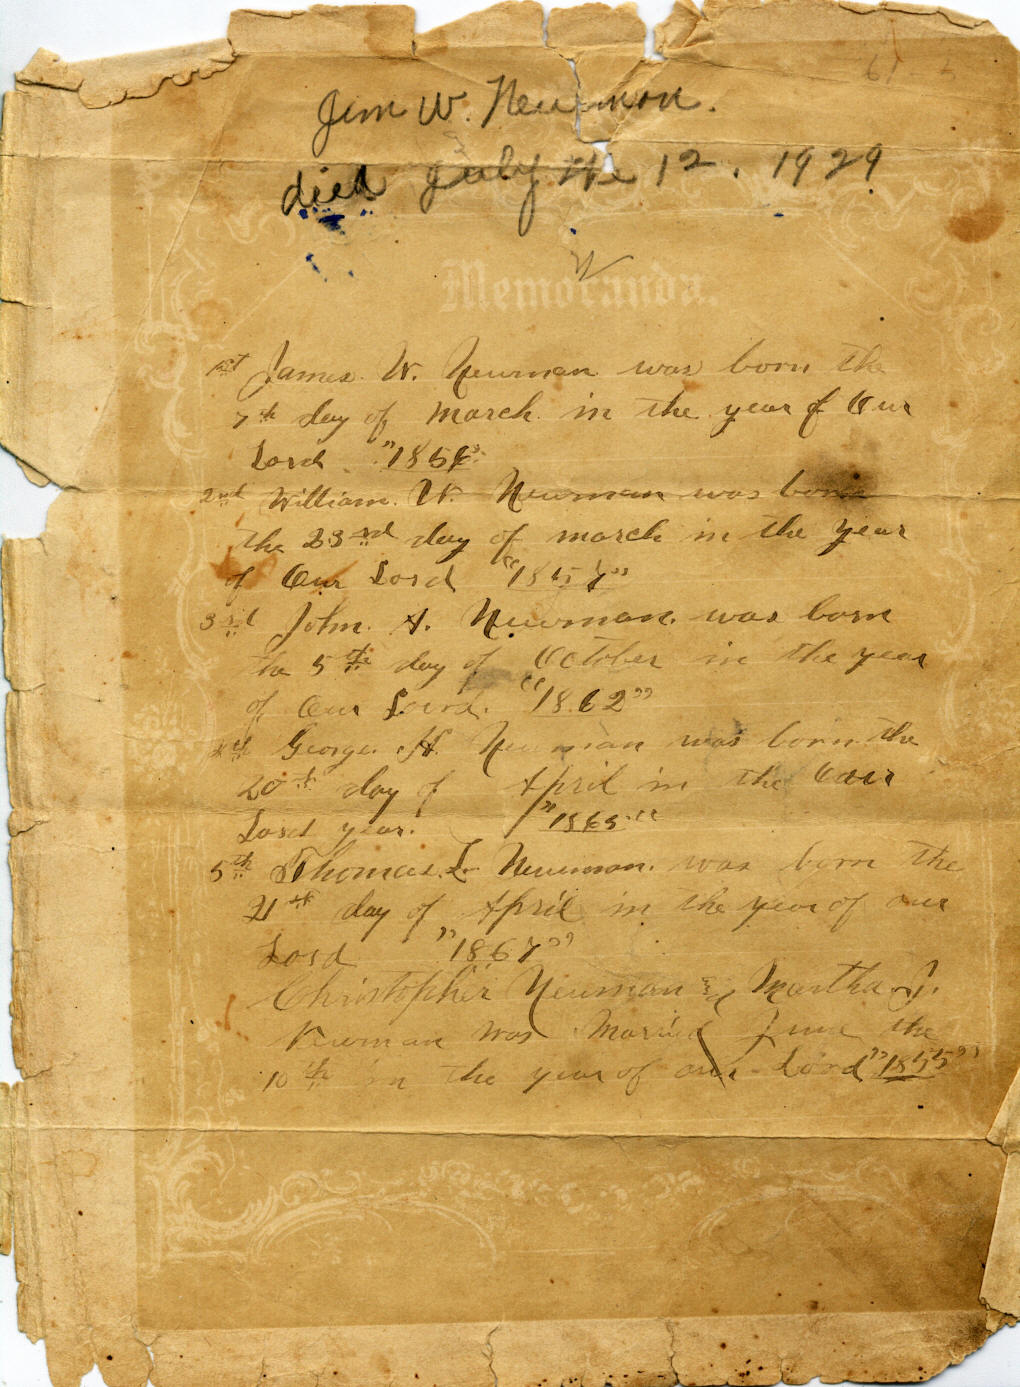 Jim W. Newman.
died July the 12, 1929
Memoranda.
1st James W. Newman was born the
7th day of March in the year of Our
Lord "1856"
2nd William. W. Newman was born
the 23rd day of march in the year
of Our Lord "1857"
3rd John. A. Newman. was born
the 5th day of October in the year
of Our Lord. "1862"
4th George. H. Newman was born the
20th day of April in the Our
Lord year. "1865"
5th Thomas. L. Newman. was born the
21st day of April in the year of our
Lord "1867"
Christopher Newman & Martha J.
Newman was Married June the
10th in the year of our Lord "1855"